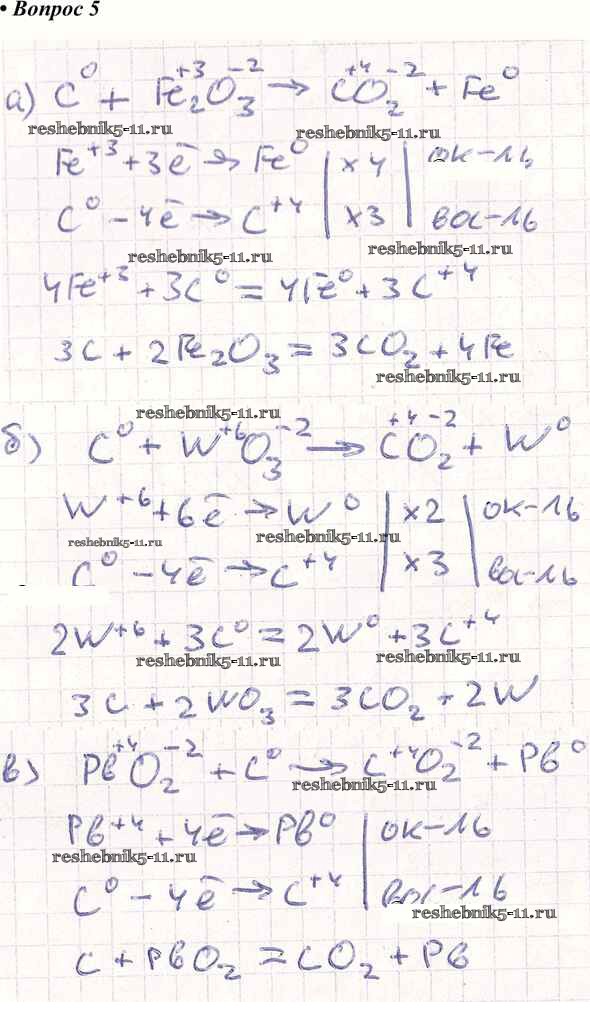 • Вопрос 5
а) C⁰ + Fe₂⁺³O₃⁻² → C⁺⁴O₂⁻² + Fe⁰
reshebnik5-11.ru reshebnik5-11.ru
Fe⁺³ + 3ē → Fe⁰ | ×4 | ок-ль
C⁰ - 4ē → C⁺⁴ | ×3 | вос-ль
reshebnik5-11.ru reshebnik5-11.ru
4Fe⁺³ + 3C⁰ = 4Fe⁰ + 3C⁺⁴
3C + 2Fe₂O₃ = 3CO₂ + 4Fe
reshebnik5-11.ru
reshebnik5-11.ru
б) C⁰ + W⁺⁶O₃⁻² → C⁺⁴O₂⁻² + W⁰
W⁺⁶ + 6ē → W⁰ | ×2 | ок-ль
reshebnik5-11.ru reshebnik5-11.ru
C⁰ - 4ē → C⁺⁴ | ×3 | вос-ль
2W⁺⁶ + 3C⁰ = 2W⁰ + 3C⁺⁴
reshebnik5-11.ru reshebnik5-11.ru
3C + 2WO₃ = 3CO₂ + 2W
в) Pb⁺⁴O₂⁻² + C⁰ → C⁺⁴O₂⁻² + Pb⁰
reshebnik5-11.ru
Pb⁺⁴ + 4ē → Pb⁰ | ок-ль
reshebnik5-11.ru
C⁰ - 4ē → C⁺⁴ | вос-ль
reshebnik5-11.ru
C + PbO₂ = CO₂ + Pb